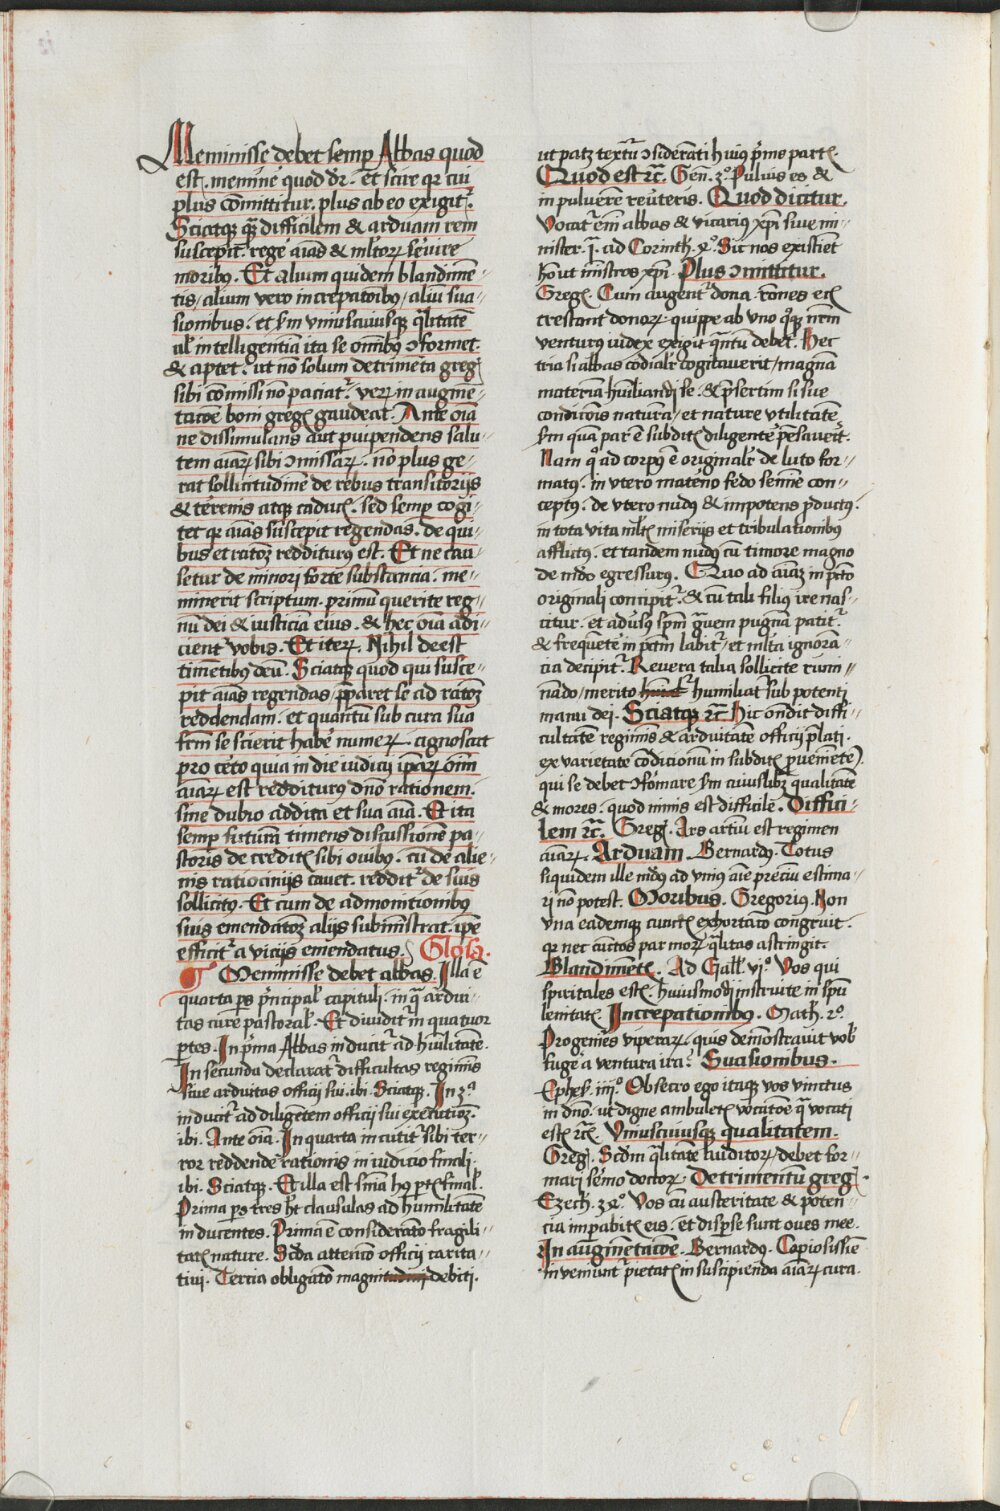 Meminisse debet semp Abbas quod
est. memine quod dr. et scire qr cui
plus cōmittitur. plus ab eo exigit᷑.
Sciatqꝫ q̄ difficilem & arduam rem
suscepit. regē aīas & mltoꝝ ſuire
moribꝰ. Et alium quidem blandimē⸗
tis/ alium vero increpatōibꝰ/ aliū sua⸗
sionibus. et ſm vniuscuiusqꝫ q̄litatē
ul̛ intelligentiā ita se omībꝰ ↄformet.
& aptet. ut nō solum detrimēta greg̛
sibi cōmissi nō paciat᷑. veꝝ in augmē⸗
tacōe boni greg̛ gaudeat. Ante oīa
ne dissimulans aut puipendens salu⸗
tem aīaꝝ sibi ↄmissaꝝ. nō plus ge⸗
rat sollicitudinē de rebus transitorijs
& terrenis atqꝫ caduc̛. sed semp cogi⸗
tet qr aīas suscepit regendas. de qui⸗
bus et ratōꝫ redditurꝰ est. Et ne cau⸗
setur de minori forte substancia. me⸗
minerit scriptum. primū querite reg⸗
nū dei & iusticiā eius. & hec oīa adi⸗
cient᷑ vobis. Et iteꝝ. Nihil deest
timētibꝰ deū. Sciatqꝫ quod qui susce⸗
pit aīas regendas/ p̄paret se ad ratōꝫ
reddendam. et quantū sub cura sua
frm̄ se scierit habē numeꝝ. agnoscat
pro cēto quia in die iudicij ipaꝝ oīm
aīaꝝ est redditurꝰ dn̄o rationem.
sine dubio addita et sua aīa. Et ita
semp futurā timens discussionē pa⸗
storis de credit̛ sibi ouibꝰ. cū de alie⸗
nis ratiocinijs cauet. reddit᷑ de suis
sollicitꝰ. Et cum de admonitionibꝰ
suis emendatōꝫ alijs submīstrat. ipe
efficit᷑ a vicijs emendatus. Glosa.
Meminisse debet abbas. Illa ē
quarta ps p̄ncipal̛ capituli. in q̄ ardui⸗
tas cure pastoral̛. Et diuidit᷑ in quatuor
ptes. In p̄ma Abbas inducit᷑ ad hūilitatē.
In secunda declarat᷑ difficultas regimīs
siue arduitas officij sui. ibi. Sciatqꝫ. In 3ª
inducit᷑ ad diligētem officij sui executiōꝫ.
ibi. Ante oīa. In quarta incutit᷑ sibi ter⸗
ror reddende rationis in iudicio finali.
ibi. Sciatqꝫ. Et illa est sn̄ia hꝰ pt̛ final̛.
Prima ps tres hꝫ clausulas ad humilitatē
inducentes. Prima ē consideratō fragili⸗
tat̛ nature. Scd̄a attencō officij carita⸗
tiui. Tercia obligatō magni debiti.
ut patꝫ textū ↄsideranti huiꝰ p̄me part̛.
Quod est ꝛc̄. Gen̄. 3º. Puluis es &
in puluerē reūteris. Quod dicitur.
Vocat᷑ em̄ abbas & vicariꝰ xp̄i siue mi⸗
nister. j. ad Corinth. Sic nos existīet
hō ut mīstros xp̄i. Plus ↄmittitur.
Greg̛. Cum augent᷑ dona. rōnes ecī
crescant donoꝝ. quippe ab vno qͦqꝫ nrm̄
venturꝰ iudex exigit q̄ntū debet. Hec
tria si abbas cōdialr̛ cogitauerit/ magnā
materiā hūiliandi se. & p̄sertim si sue
condicōis natura/ et nature vtilitatē
ſm quā par ē subdit̛ diligenter pēsauerit.
Nam qͦ ad corpꝰ ē originalr̛ de luto for⸗
matꝰ. in vtero matno fedo semīe con⸗
ceptꝰ. de vtero nudꝰ & impotens p̄ductꝰ.
in tota vita mlt̛ miserijs et tribulationibꝰ
afflictꝰ. et tandem nudꝰ cū timore magno
de mūdo egressurꝰ. Quo ad aīaꝫ in pctō
originali concipit᷑. & cū tali filius ire nas⸗
citur. et adūsꝰ spm̄ g̃uem pugnā patit᷑.
& frequētē in pctm̄ labit᷑/ et mlta ignorā⸗
cia decipit᷑. Reuera talia sollicite rumi⸗
nādo/ merito humiliat᷑ sub potenti
manu dei. Sciatqꝫ ꝛc̄. Hic on̄dit diffi⸗
cultatē regimīs & arduitatē officij p̄lati.
ex varietate cōdicionū in subdit̛ puemētē.
qui se debet ↄfōmare ſm cuiuslibꝫ qualitatē
& mores. quod nimis est difficile. Diffici⸗
lem ꝛc̄. Greg̛. Ars artiū est regimen
aīaꝝ. Arduam. Bernardꝰ. Totus
siquidem ille mūdꝰ ad vniꝰ aīe preciū estima⸗
ri nō potest. Moribus. Gregoriꝰ. Non
vna eademqꝫ cunct̛ exhortacō congruit.
qr nec cūctos par moꝝ q̄litas astringit.
Blandimēt̛. Ad Gall̛. vjº. Vos qui
spiritales est̛. huiusmodi instruite in spū
lenitat̛. Increpationibꝰ. Math. 2º.
Progenies viperaꝝ. quis demōstrauit vob̛
fugē a ventura ira. Suasionibus.
Ephes̛. iiijº. Obsecro ego itaqꝫ vos vinctus
in dn̄o. ut digne ambulet̛ vocatōe q̄ vocati
est̛ ꝛc̄. Vniuscuiusqꝫ qualitatem.
Greg̛. Scd̄m q̄litatē auditoꝝ/ debet for⸗
mari s̄mo doctoꝝ. Detrimentū greg̛.
Ezech. Vos cū austeritate & poten⸗
cia imperabit̛ eis. et disp̄se sunt oues mee.
In augmētacōe. Bernardꝰ. Copiosissiē
inveniunt᷑ pietat̛ in suscipienda aīaꝝ cura.